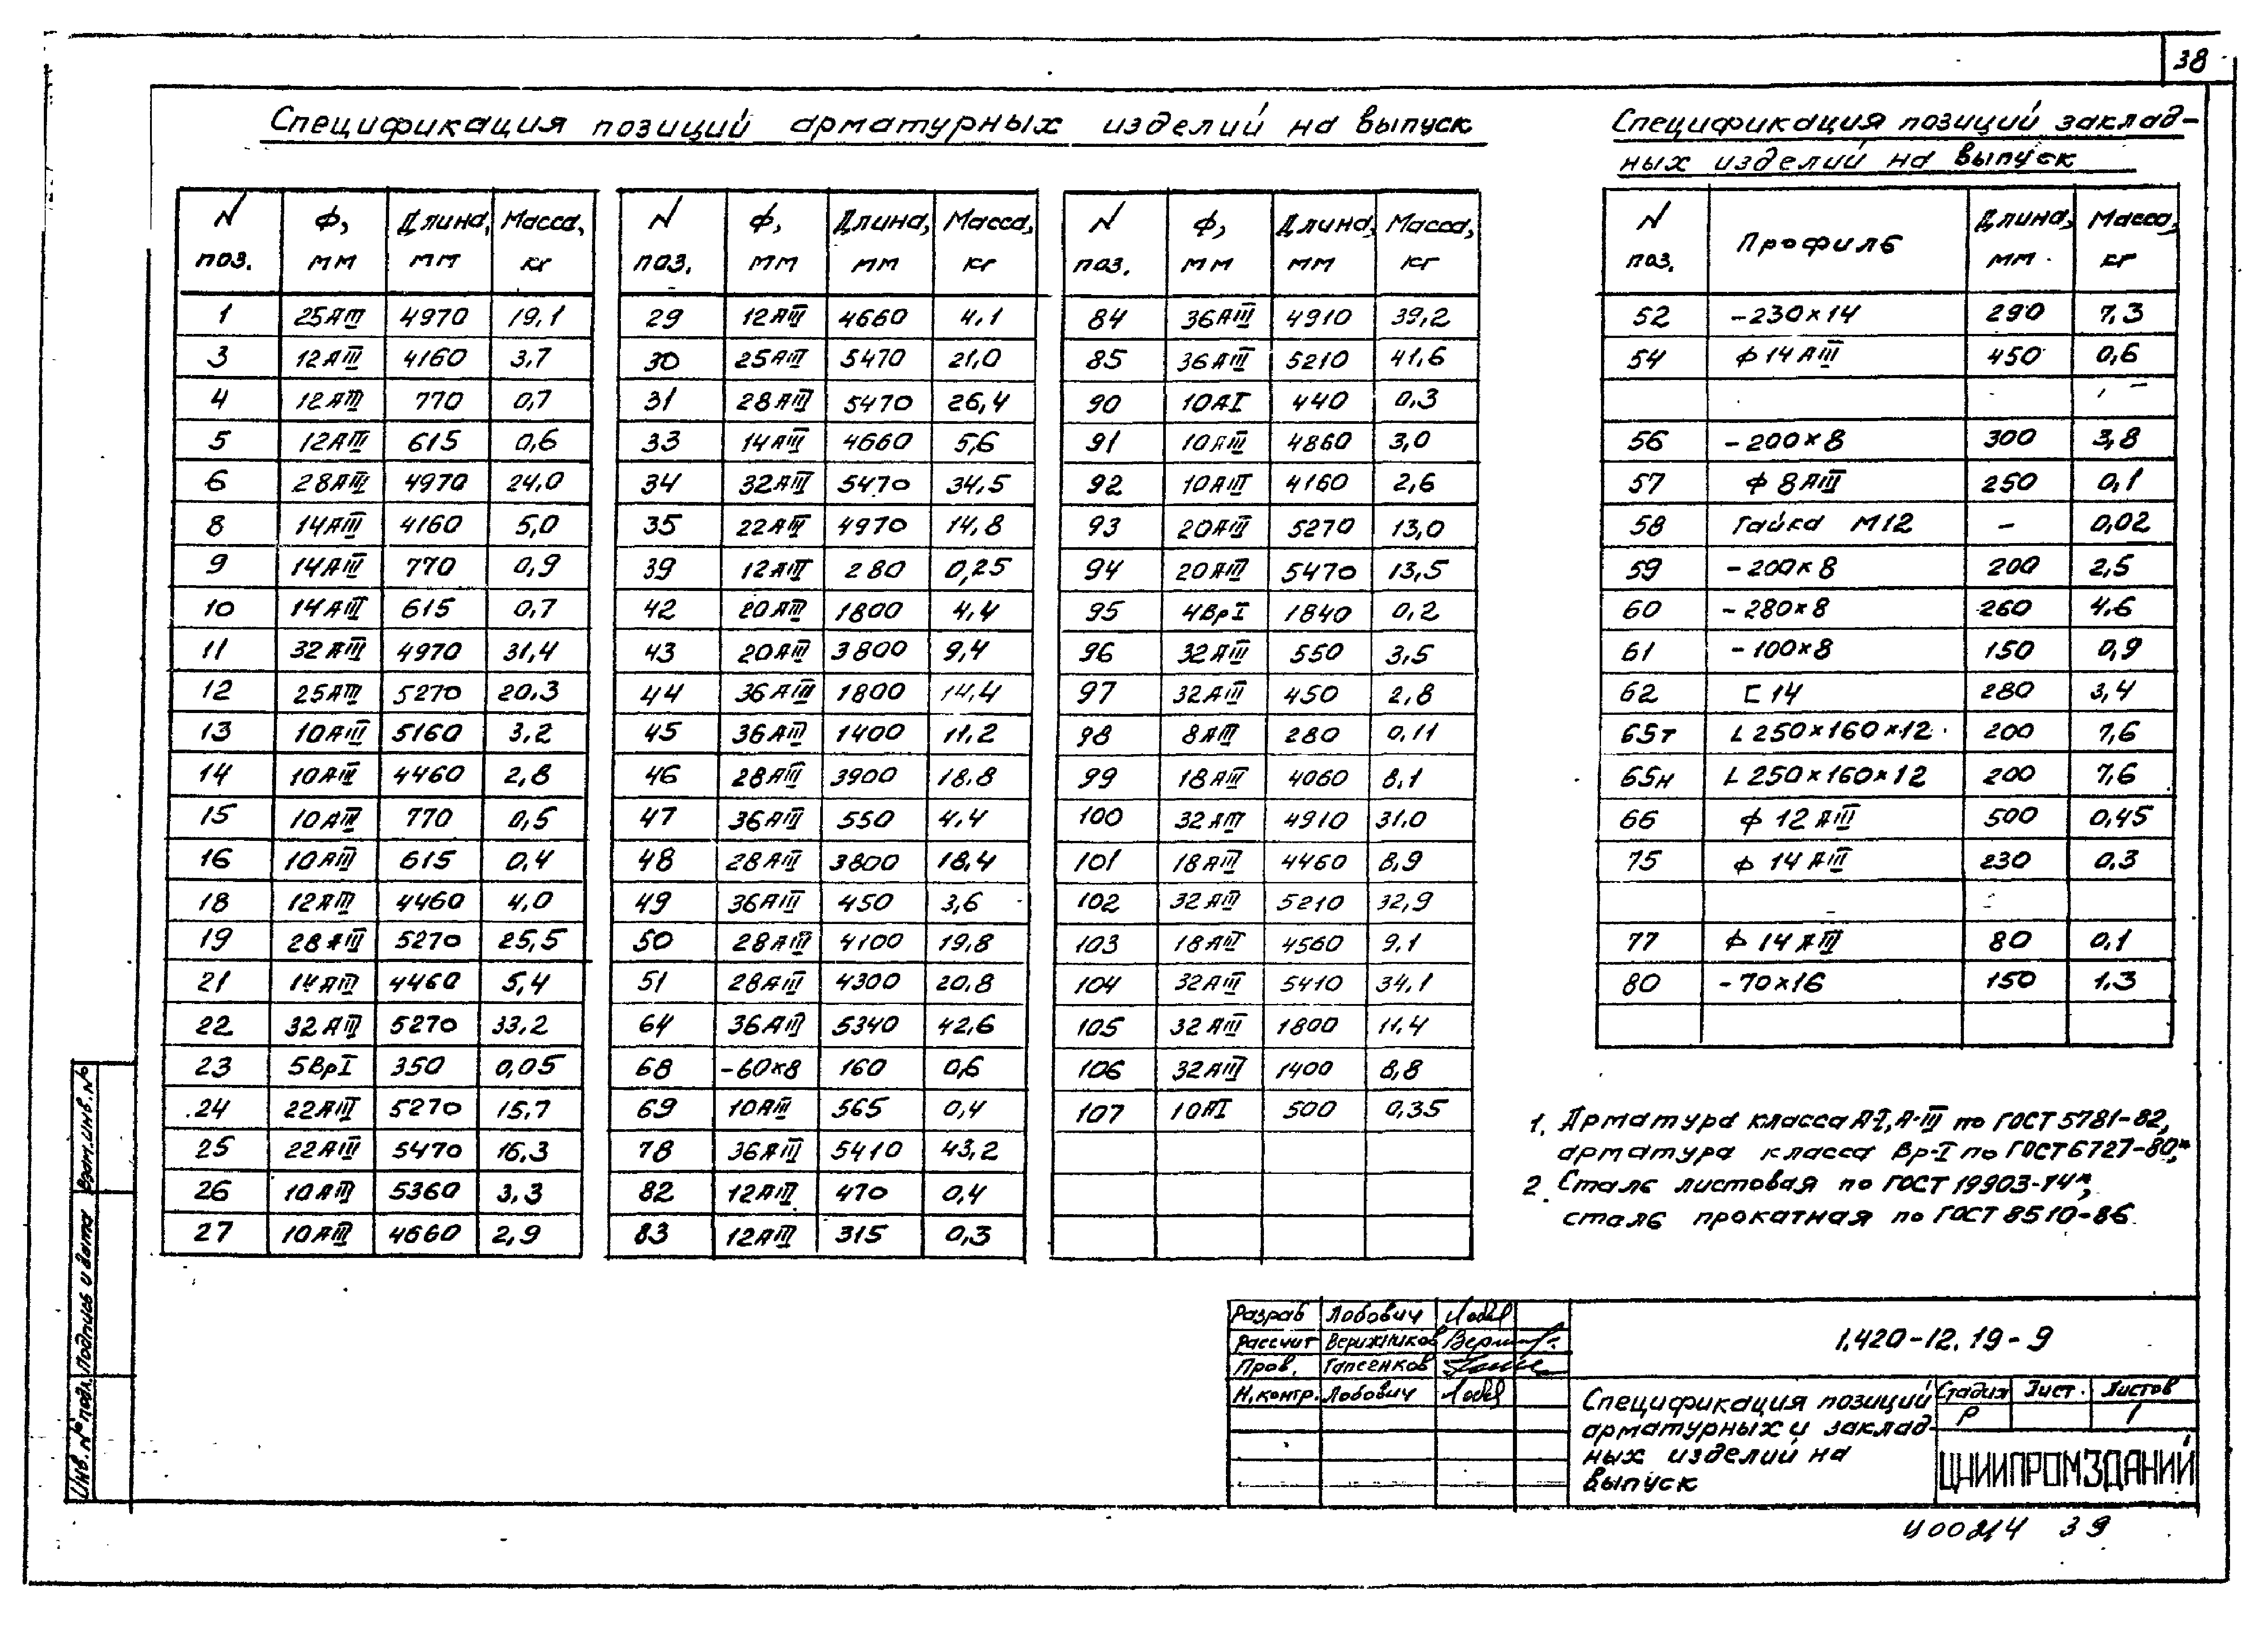 38
Спецификация позиций арматурных изделий на выпуск
N поз. Ф, мм Длина, мм Масса, кг
1 25АIII 4970 19,1
3 12АIII 4160 3,7
4 12АIII 770 0,7
5 12АIII 615 0,6
6 28АIII 4970 24,0
8 14АIII 4160 5,0
9 14АIII 770 0,9
10 14АIII 615 0,7
11 32АIII 4970 31,4
12 25АIII 5270 20,3
13 10АIII 5160 3,2
14 10АIII 4460 2,8
15 10АIII 770 0,5
16 10АIII 615 0,4
18 12АIII 4460 4,0
19 28АIII 5270 25,5
21 14АIII 4460 5,4
22 32АIII 5270 33,2
23 5ВрI 350 0,05
24 22АIII 5270 15,7
25 22АIII 5470 16,3
26 10АIII 5360 3,3
27 10АIII 4660 2,9
N поз. Ф, мм Длина, мм Масса, кг
29 12АIII 4660 4,1
30 25АIII 5470 21,0
31 28АIII 5470 26,4
33 14АIII 4660 5,6
34 32АIII 5470 34,5
35 22АIII 4970 14,8
39 12АIII 280 0,25
42 20АIII 1800 4,4
43 20АIII 3800 9,4
44 36АIII 1800 14,4
45 36АIII 1400 11,2
46 28АIII 3900 18,8
47 36АIII 550 4,4
48 28АIII 3800 18,4
49 36АIII 450 3,6
50 28АIII 4100 19,8
51 28АIII 4300 20,8
64 36АIII 5340 42,6
68 -60×8 160 0,6
69 10АIII 565 0,4
78 36АIII 5410 43,2
82 12АIII 470 0,4
83 12АIII 315 0,3
N поз. Ф, мм Длина, мм Масса, кг
84 36АIII 4910 39,2
85 36АIII 5210 41,6
90 10АI 440 0,3
91 10АIII 4860 3,0
92 10АIII 4160 2,6
93 20АIII 5270 13,0
94 20АIII 5470 13,5
95 4ВрI 1840 0,2
96 32АIII 550 3,5
97 32АIII 450 2,8
98 8АIII 280 0,11
99 18АIII 4060 8,1
100 32АIII 4910 31,0
101 18АIII 4460 8,9
102 32АIII 5210 32,9
103 18АIII 4560 9,1
104 32АIII 5410 34,1
105 32АIII 1800 11,4
106 32АIII 1400 8,8
107 10АI 500 0,35
Спецификация позиций заклад-
ных изделий на выпуск
N поз. Профиль Длина, мм Масса, кг
52 -230×14 290 7,3
54 ф14АIII 450 0,6
56 -200×8 300 3,8
57 ф8АIII 250 0,1
58 Гайка М12 – 0,02
59 -200×8 200 2,5
60 -280×8 260 4,6
61 -100×8 150 0,9
62 [14 280 3,4
65т L250×160×12 200 7,6
65н L250×160×12 200 7,6
66 ф12АIII 500 0,45
75 ф14АIII 230 0,3
77 ф14АIII 80 0,1
80 -70×16 150 1,3
1. Арматура класса А-I, А-III по ГОСТ 5781-82,
арматура класса Вр-I по ГОСТ 6727-80*,
2. Сталь листовая по ГОСТ 19903-74*,
сталь прокатная по ГОСТ 8510-86.
Взам.инв.N°
Подпись и дата
Инв.N°подл.
Разраб Лобович
Рассчит Верижников
Пров. Гапеенков
Н.контр. Лобович
1.420-12.19-9
Спецификация позиций
арматурных и заклад-
ных изделий на
выпуск
Стадия Лист. Листов
Р 1
ЦНИИПРОМЗДАНИЙ
39